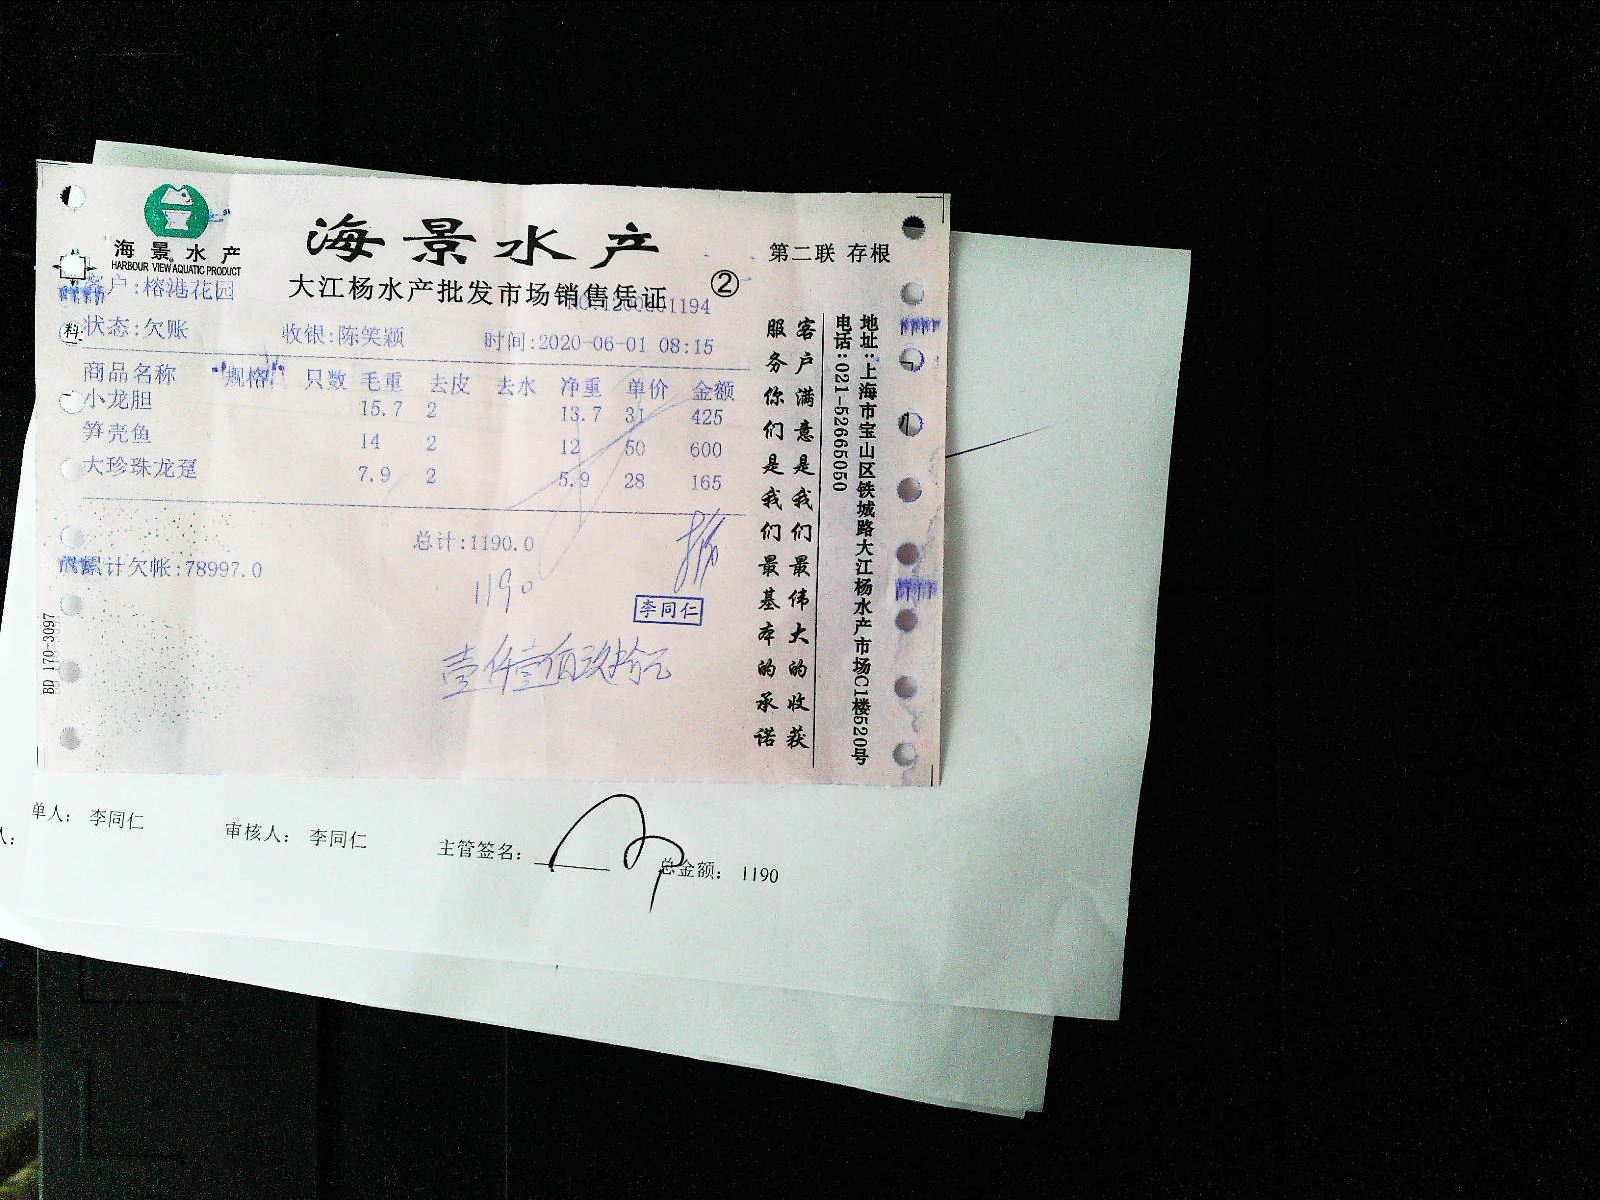 海景水产
HARBOUR VIEW AQUATIC PRODUCT
海景水产
第二联 存根
大江杨水产批发市场销售凭证 ②
客户:榕港花园
状态:欠账 收银:陈笑颖 时间:2020-06-01 08:15
商品名称 规格 只数 毛重 去皮 去水 净重 单价 金额
小龙胆 15.7 2 13.7 31 425
笋壳鱼 14 2 12 50 600
大珍珠龙趸 7.9 2 5.9 28 165
总计:1190.0
累计欠帐:78997.0
1190
李同仁
壹仟壹佰玖拾元
客户满意是我们最伟大的收获
服务你们是我们最基本的承诺
地址:上海市宝山区铁城路大江杨水产市场C1楼520号
电话:021-52665050
BD 170-3097
单人: 李同仁 审核人: 李同仁 主管签名: 总金额: 1190
人: